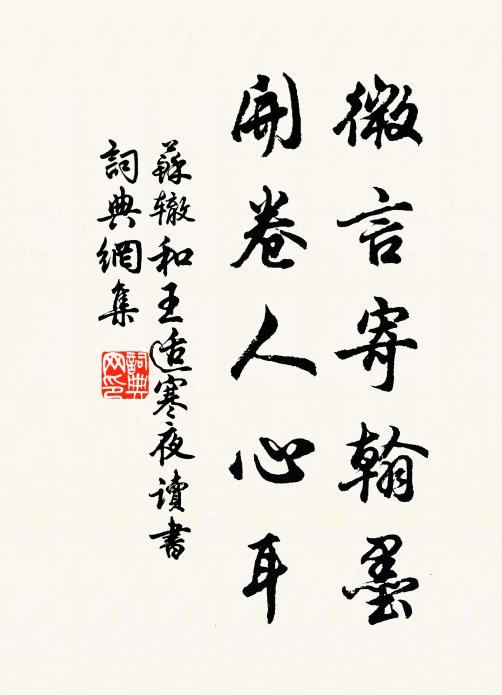 微言寄翰墨
開卷人心耳
蘇轍和王适寒夜讀書
詞典網集
詞典網印